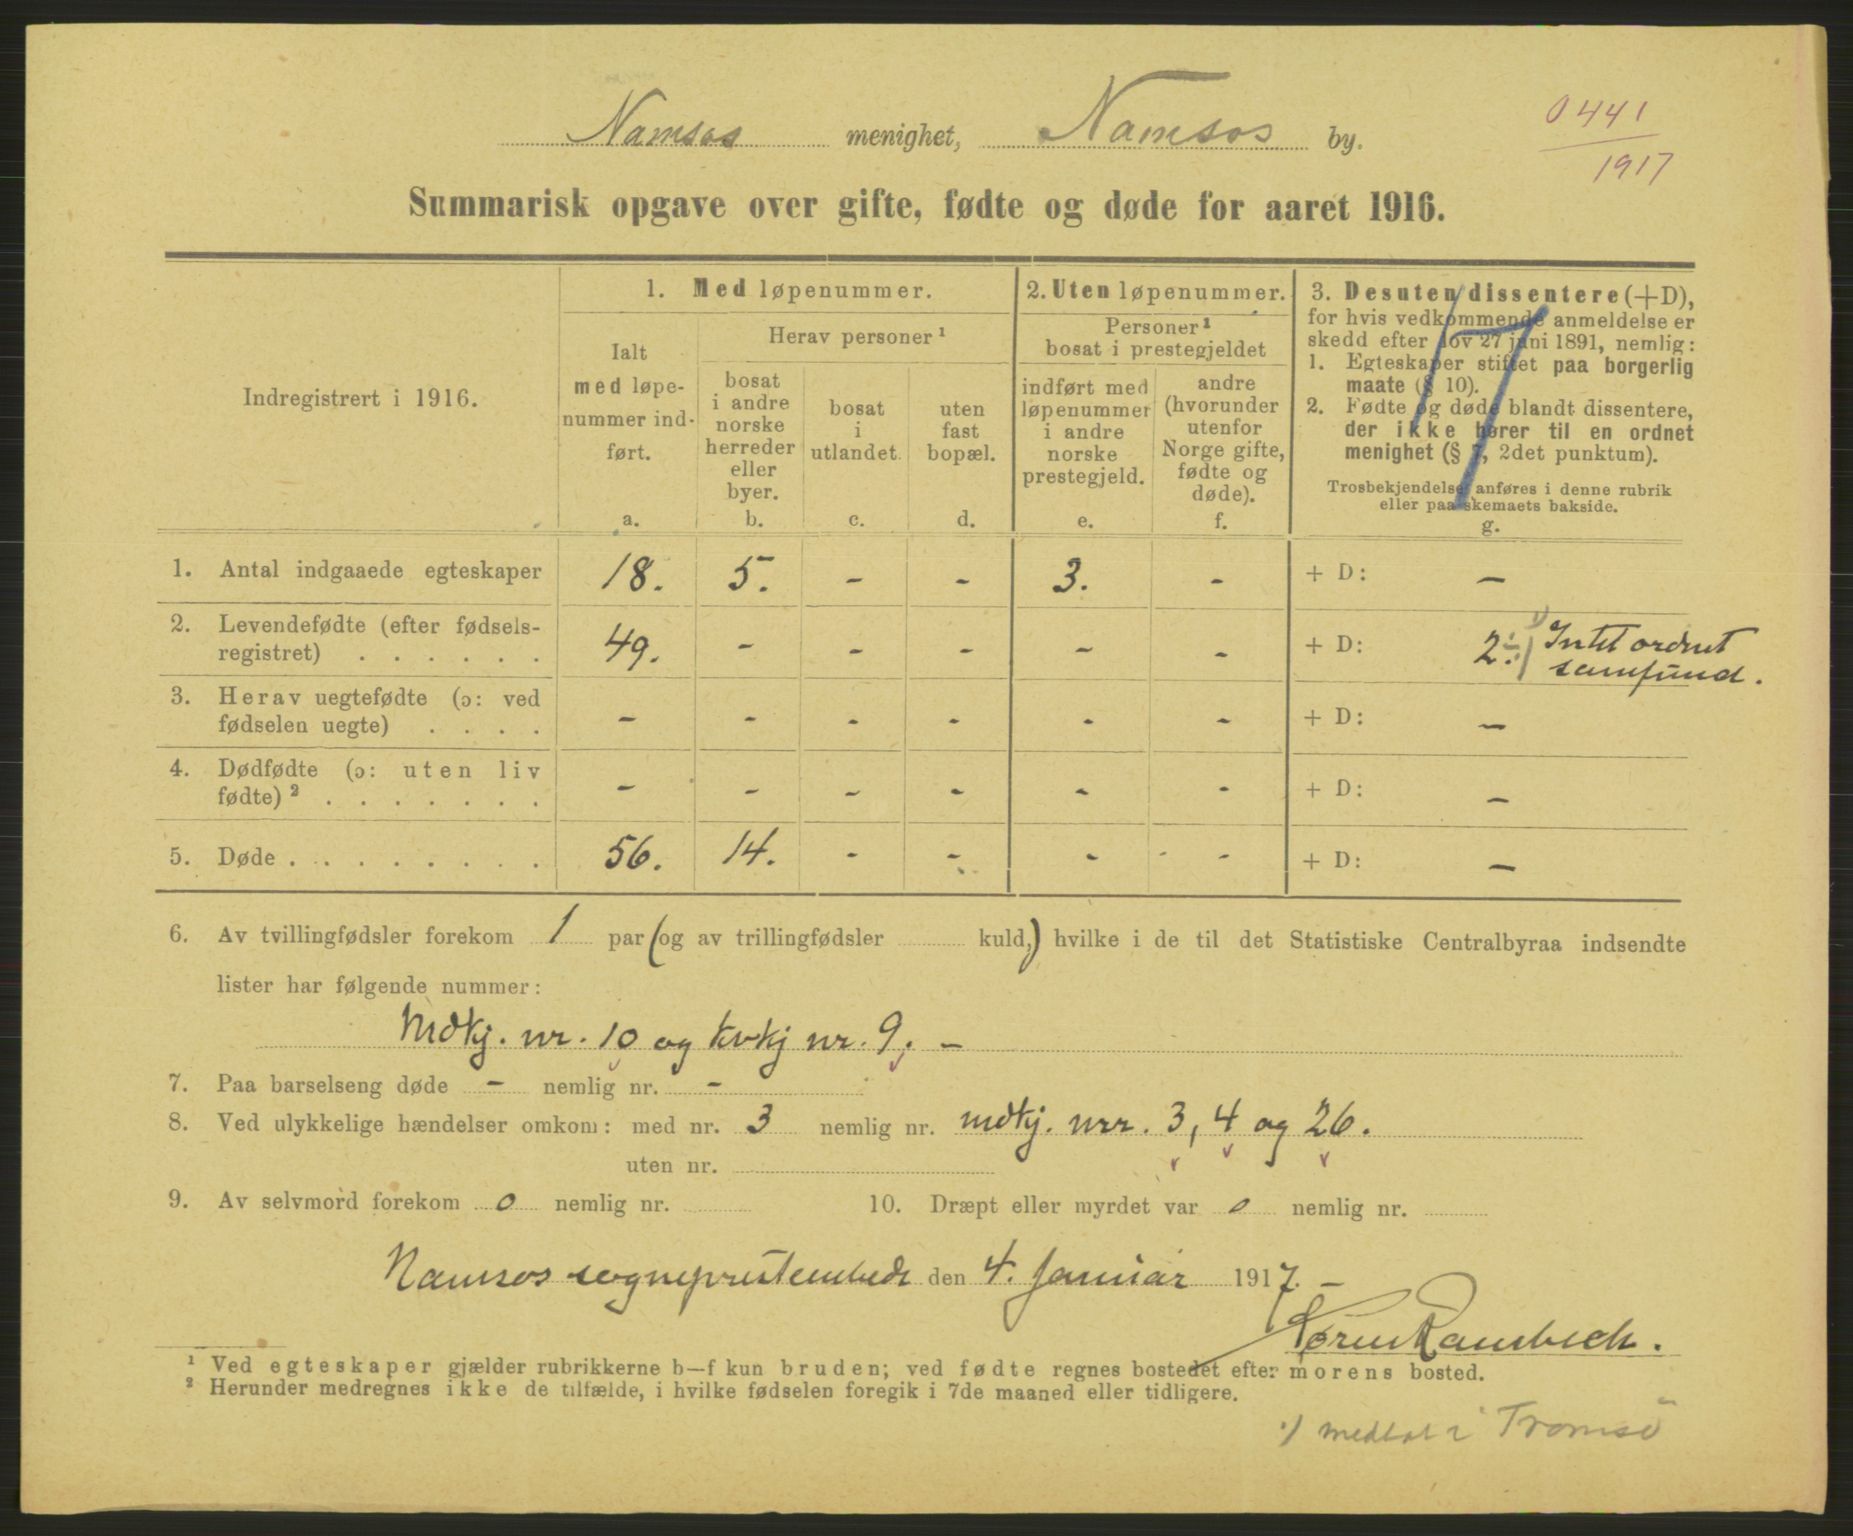 Namsos menighet, Namsos by.
0441
1917
Summarisk opgave over gifte, fødte og døde for aaret 1916.
Indregistrert i 1916.
1. Med løpenummer.
2. Uten løpenummer.
3. Desuten dissentere (+D),
for hvis vedkommende anmeldelse er
skedd efter lov 27 juni 1891, nemlig:
1. Egteskaper stiftet paa borgerlig
maate (§ 10).
2. Fødte og døde blandt dissentere,
der ikke hører til en ordnet
menighet (§ 7, 2det punktum).
Trosbekjendelse anføres i denne rubrik
eller paa skemaets bakside.
g.
Ialt
med løpe-
nummer ind-
ført.
a.
Herav personer ¹
bosat
i andre
norske
herreder
eller
byer.
b.
bosat
i
utlandet.
c.
uten
fast
bopæl.
d.
Personer ¹
bosat i prestegjeldet
indført med
løpenummer
i andre
norske
prestegjeld.
e.
andre
(hvorunder
utenfor
Norge gifte,
fødte og
døde).
f.
1. Antal indgaaede egteskaper 18. 5. - - 3. - + D: -
2. Levendefødte (efter fødsels-
registret) . . . . . . 49. - - - - - + D: 2 ÷) Intet ordnet
samfund.
3. Herav uegtefødte (ɔ: ved
fødselen uegte) . . . . - - - - - - + D: -
4. Dødfødte (ɔ: uten liv
fødte) ² . . . . . . . - - - - - - + D: -
5. Døde . . . . . . . . 56. 14. - - - - + D: -
6. Av tvillingfødsler forekom 1 par (og av trillingfødsler kuld,) hvilke i de til det Statistiske Centralbyraa indsendte
lister har følgende nummer:
Mdkj. nr. 10 og kvkj nr. 9. -
7. Paa barselseng døde - nemlig nr. -
8. Ved ulykkelige hændelser omkom: med nr. 3 nemlig nr. mdkj. nrr. 3, 4 og 26.
uten nr.
9. Av selvmord forekom 0 nemlig nr. 10. Dræpt eller myrdet var 0 nemlig nr.
Namsos sogneprestembede den 4. Januar 1917. -
Søren Rambech.
¹ Ved egteskaper gjælder rubrikkerne b—f kun bruden; ved fødte regnes bostedet efter morens bosted.
² Herunder medregnes ikke de tilfælde, i hvilke fødselen foregik i 7de maaned eller tidligere.
1) medtat i Tromsø